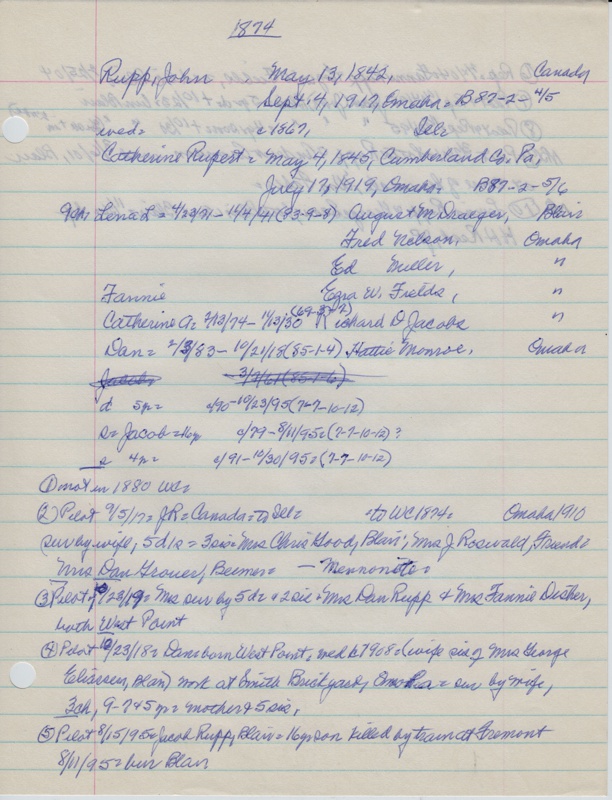 1874
Rupp, John May 13, 1842, Canada
Sept 14, 1917, Omaha = B87-2-4/5
wed= c1867, Ill=
Catherine Rupert = May 4, 1845, Cumberland Co. Pa.
July 17, 1919, Omaha= B87-2-5/6
9ch Lena L = 4/29/71 - 14/4/41 (83-9-8) August M Draeger, Blair
Fred Nelson, Omaha
Ed Muller, "
Fannie Ezra W. Fields, "
Catherine A= 2/13/74 - 11/13/30 (69-37-2) Richard D Jacobs "
Dan = 2/3/83 - 10/21/18 (85-1-4) Hattie Monroe, Omaha
Jacob= 3/2/61 (85-1-6)
d 5yr= c/90 - 10/23/95 (7-7-10-12)
s= Jacob = 16yr c/79 - 8/11/95= (7-7-10-12) ?
s 4yr= c/91 - 10/30/95= (7-7-10-12)
① not in 1880 WC=
② Pilot 9/5/17= JR= Canada= to Ill= to WC 1874= Omaha 1910
sur by wife, 5 d/s = 3 sis= Mrs Chris Good, Blair; Mrs J. Roswald,
Mrs Dan Grover, Beemer= — Mennonite=
③ Pilot 7/23/19= Mrs sur by 5 d= + 2 sis= Mrs Dan Rupp + Mrs Fannie
both West Point
④ Pilot 10/23/18= Dan= born West Point, wed 1908= (wife sis of Mrs George
Blair) work at Smith Brickyard, Omaha = sur by wife,
3 ch, 9-7 & 5 yr= mother & 5 sis.
⑤ Pilot 8/15/95= Jacob Rupp, Blair= 16yr son killed by train at Fremont
8/11/95= bur Blair